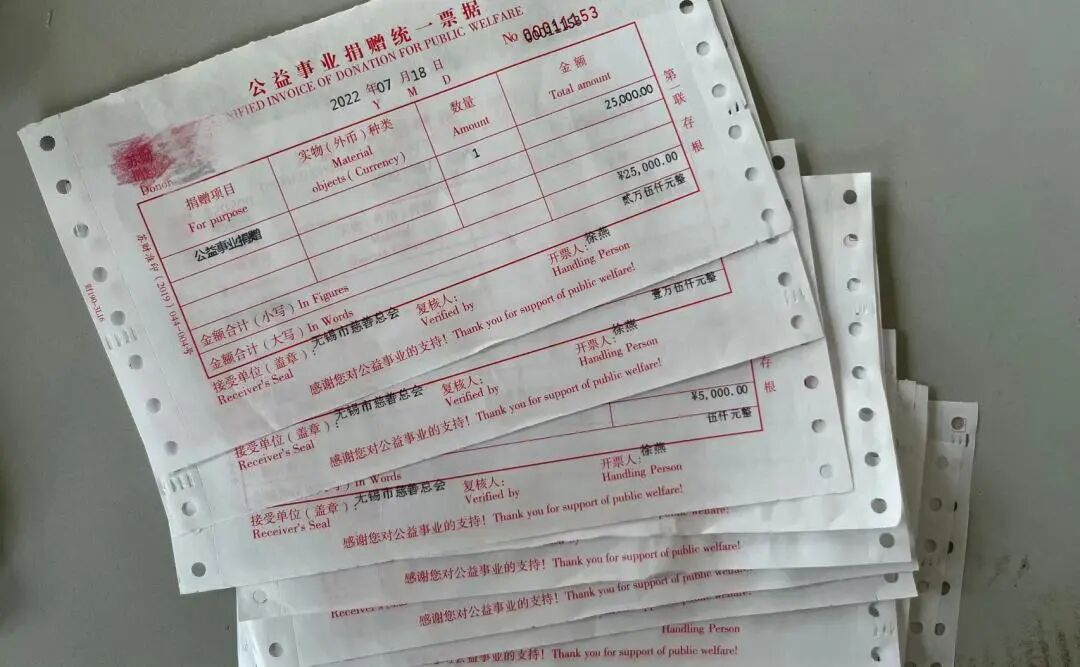 公益事业捐赠统一票据
UNIFIED INVOICE OF DONATION FOR PUBLIC WELFARE
2022 年 07 月 18 日
Y M D
No
Donor
捐赠项目
For purpose
实物(外币)种类
Material
objects(Currency)
数量
Amount
金额
Total amount
公益事业捐赠
1
25,000.00
¥25,000.00
贰万伍仟元整
金额合计(小写)In Figures
金额合计(大写)In Words
接受单位(盖章):无锡市慈善总会
Receiver's Seal
复核人:
Verified by
开票人:徐燕
Handling Person
感谢您对公益事业的支持!Thank you for support of public welfare!
第一联存根
壹万伍仟元整
接受单位(盖章):无锡市慈善总会
Receiver's Seal
复核人:
Verified by
开票人:徐燕
Handling Person
感谢您对公益事业的支持!Thank you for support of public welfare!
存根
¥5,000.00
伍仟元整
In Words
接受单位(盖章):无锡市慈善总会
Receiver's Seal
复核人:
Verified by
开票人:徐燕
Handling Person
感谢您对公益事业的支持!Thank you for support of public welfare!
感谢您对公益事业的支持!Thank you for support of public welfare!
Receiver's Seal
感谢您对公益事业的支持!Thank you for support of public welfare!
Handling Person
感谢您对公益事业的支持!Thank you for support of public welfare!